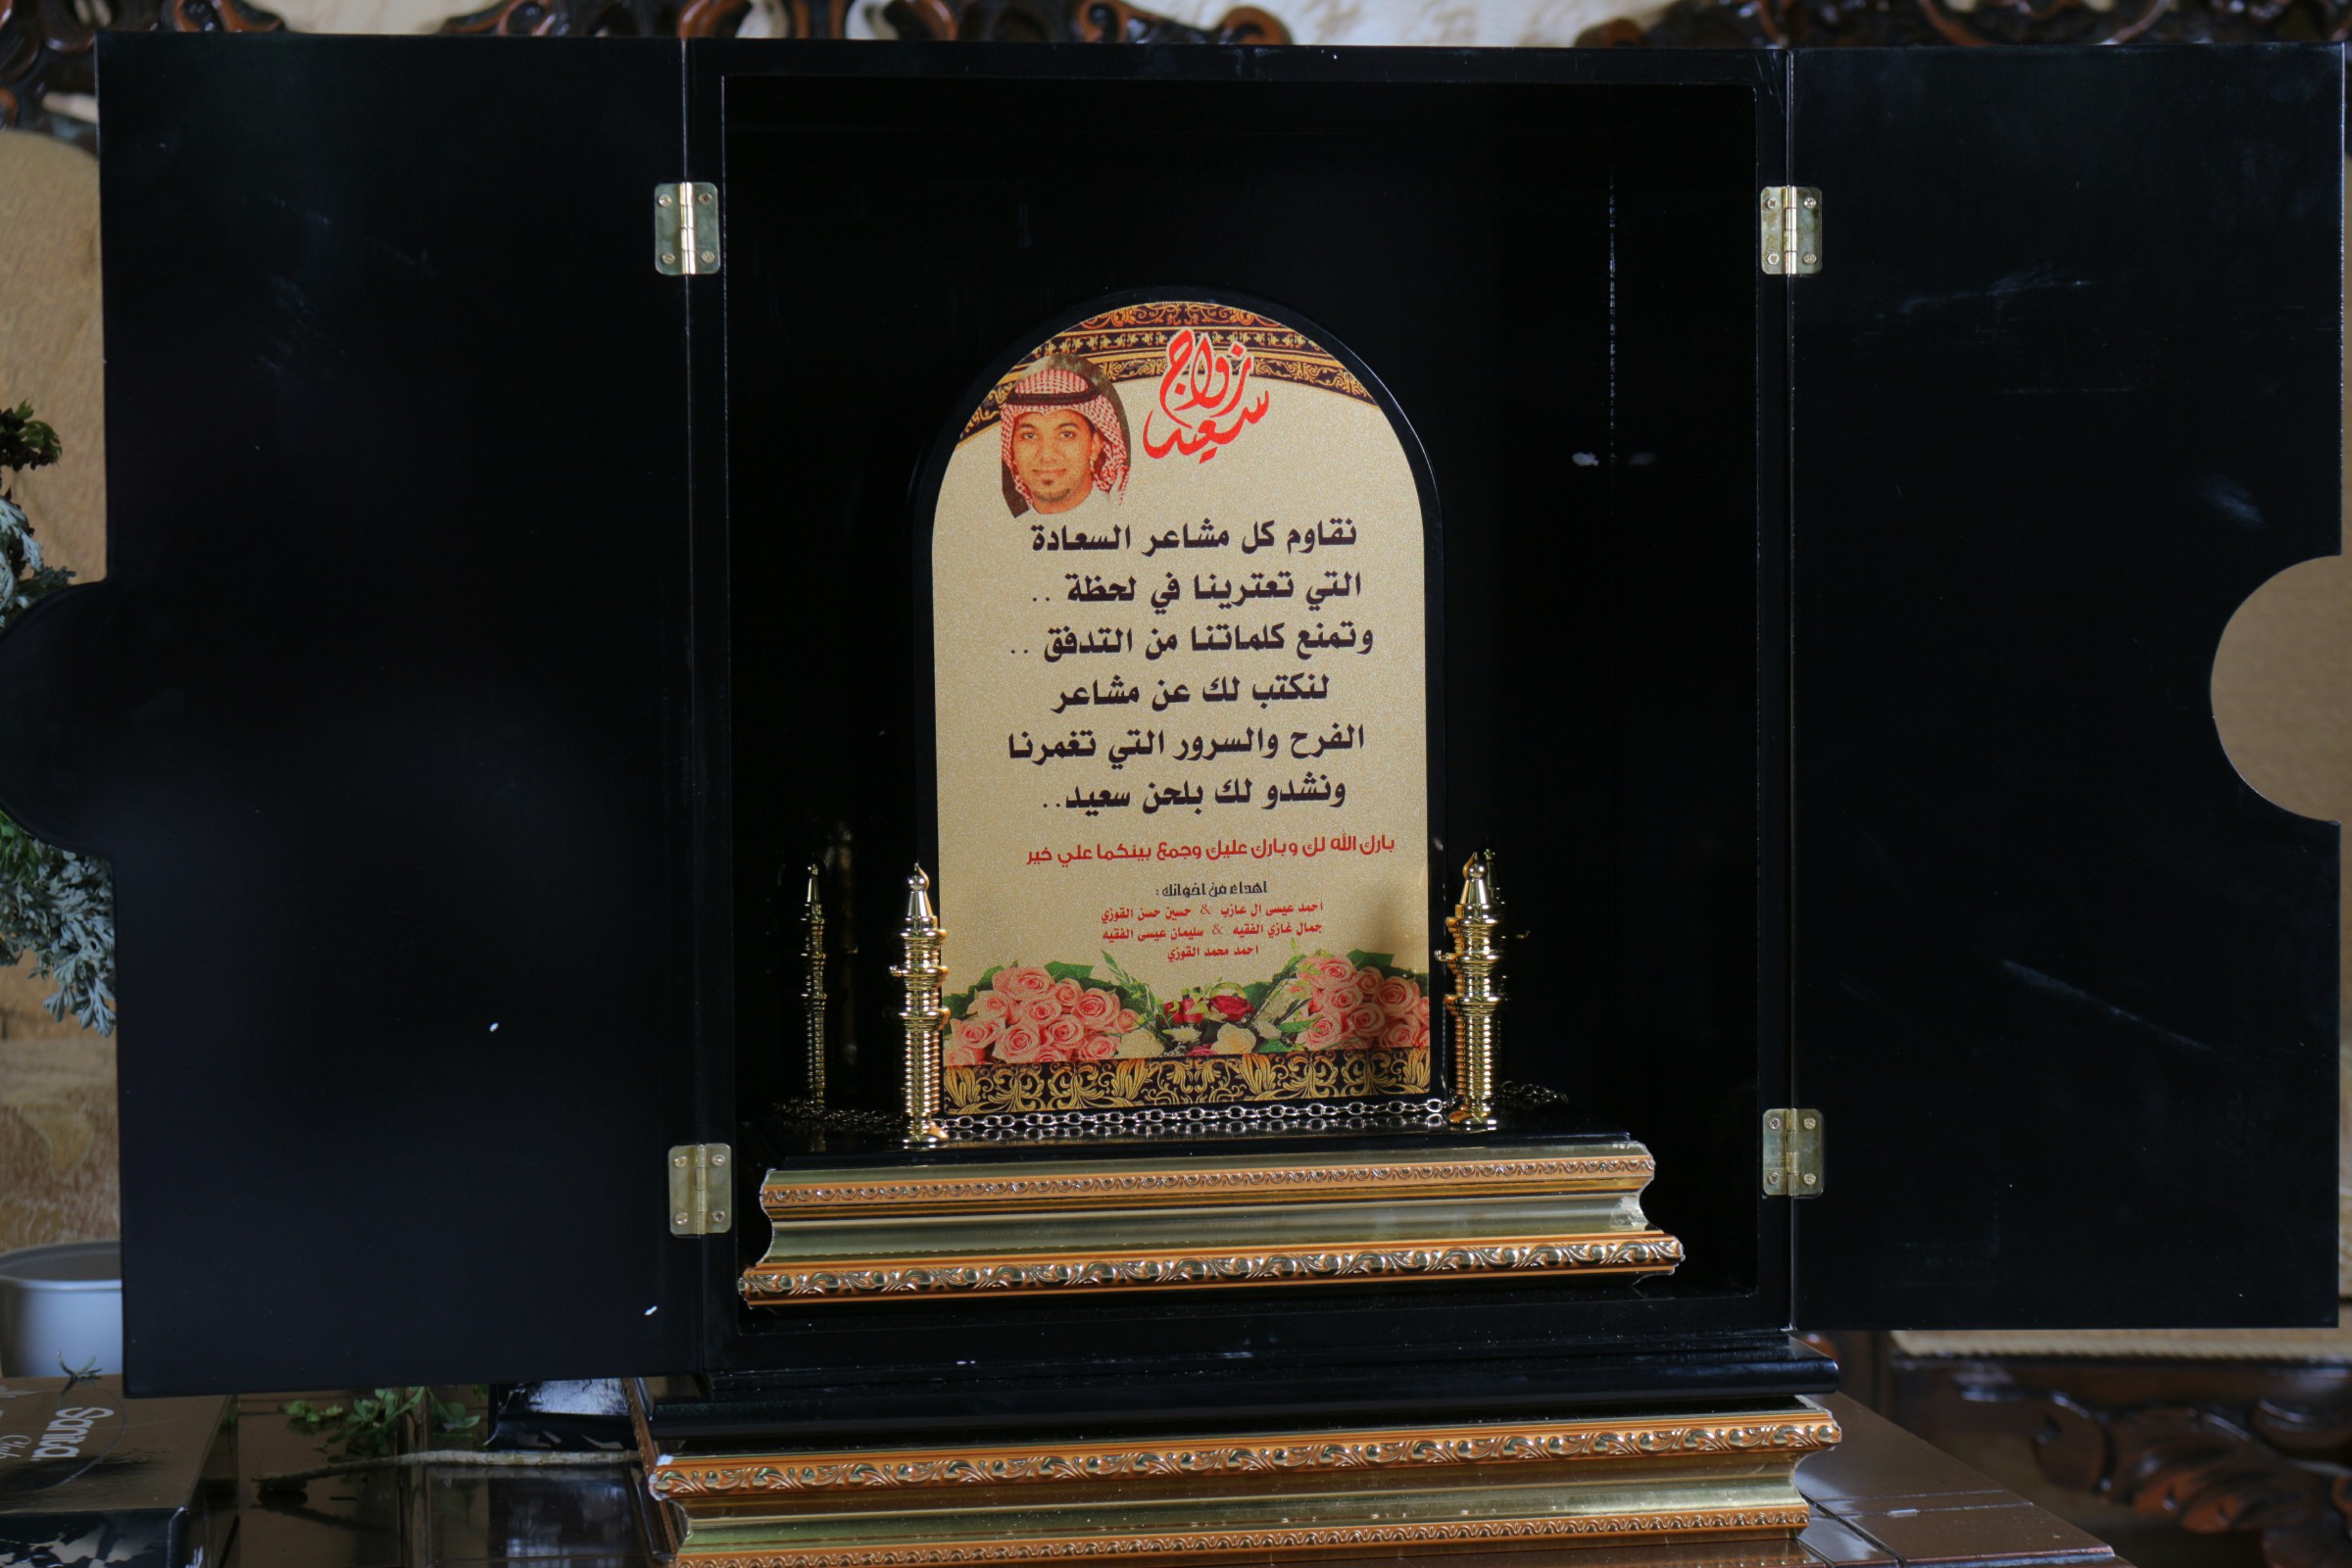 زواج
سعيد
نقاوم كل مشاعر السعادة
التي تعترينا في لحظة ..
وتمنع كلماتنا من التدفق ..
لنكتب لك عن مشاعر
الفرح والسرور التي تغمرنا
ونشدو لك بلحن سعيد..
بارك الله لك وبارك عليك وجمع بينكما علي خير
اهداء من اخوانك :
احمد عيسى ال عازب & حسين حسن القوزي
جمال غازي الفقيه & سليمان عيسى الفقيه
احمد محمد القوزي
Sanita
Club